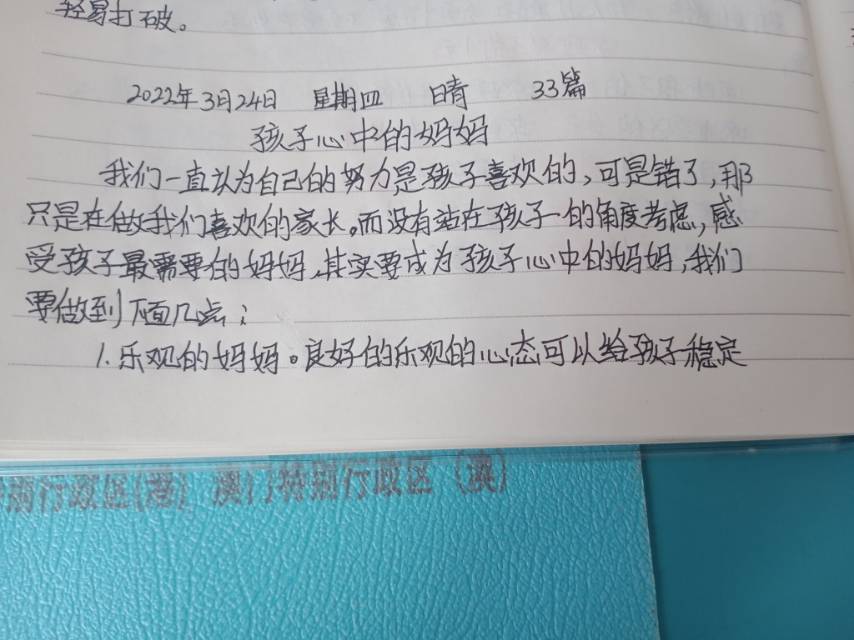 轻易打破。
2022年3月24日 星期四 晴 33篇
孩子心中的妈妈
我们一直以为自己的努力是孩子喜欢的,可是错了,那
只是在做我们喜欢的家长。而没有站在孩子的角度考虑,感
受孩子最需要的妈妈,其实要成为孩子心中的妈妈,我们
要做到下面几点:
1.乐观的妈妈。良好的乐观的心态可以给孩子稳定
别行政区(港) 澳门特别行政区(澳)